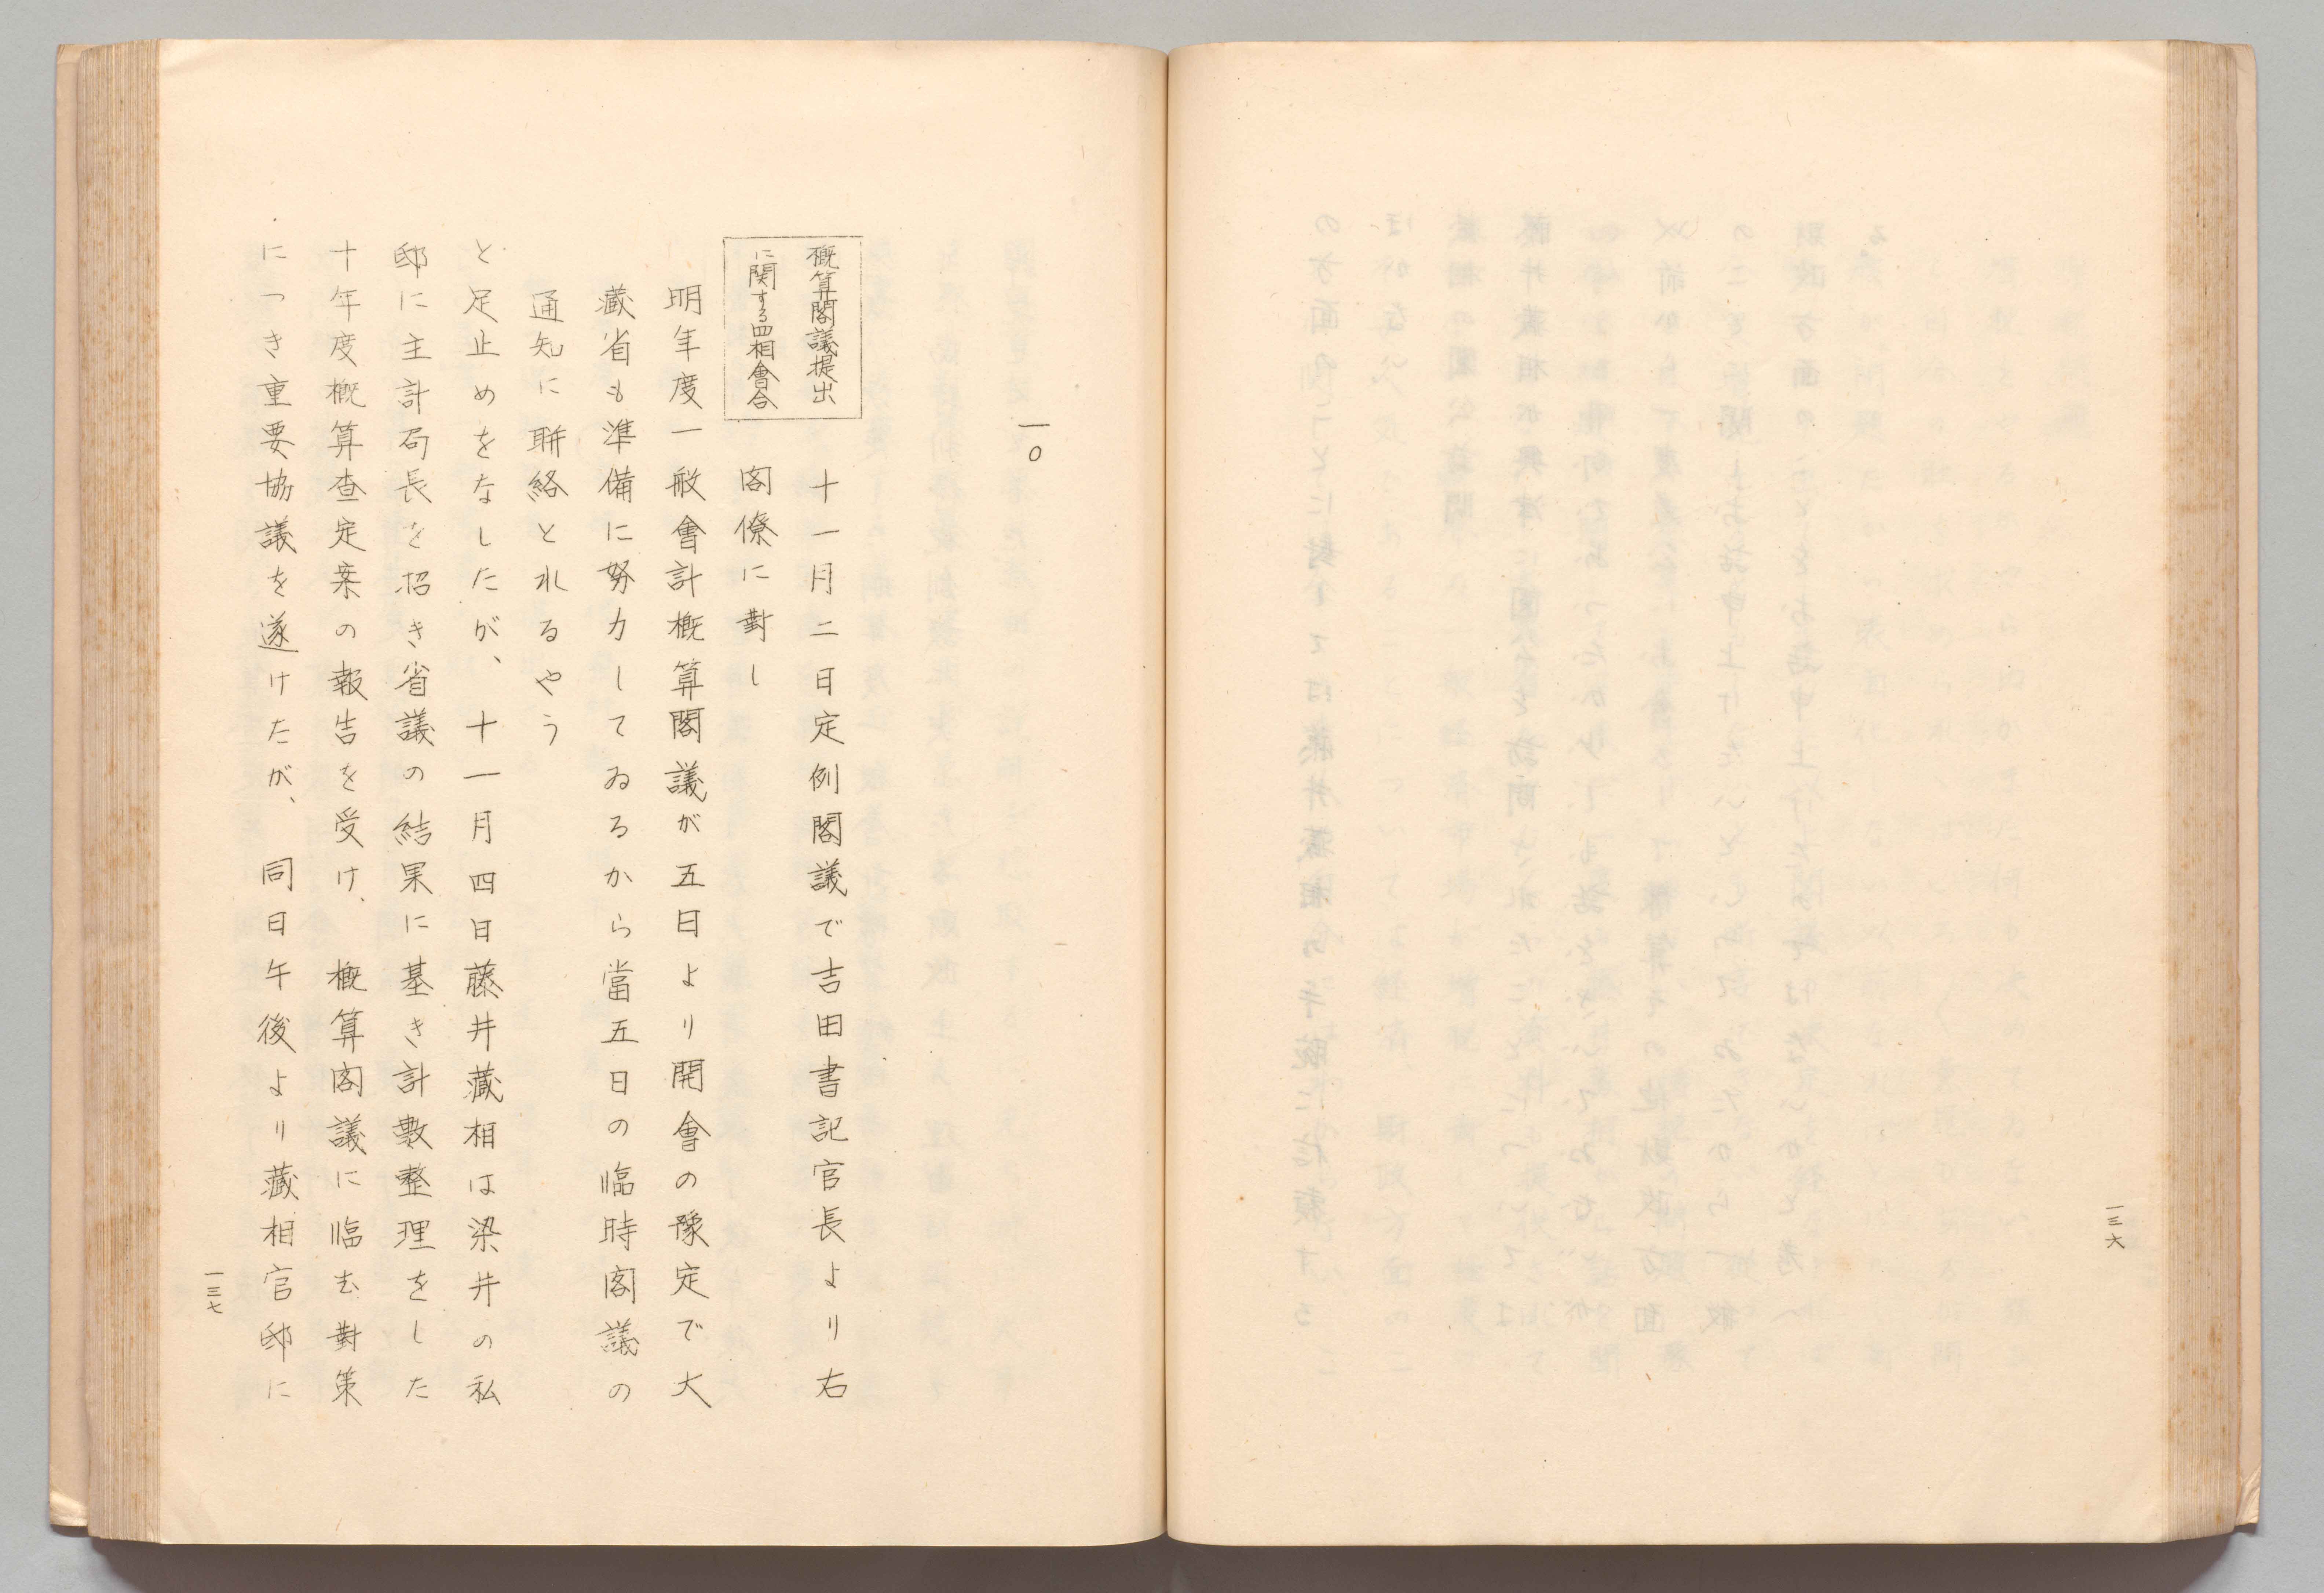 一三六
一〇
概算閣議提出
に関する四相會合
十一月二日定例閣議で吉田書記官長より右
閣僚に對し
明年度一般會計概算閣議が五日より開會の豫定で大
藏省も準備に努力してゐるから當五日の臨時閣議の
通知に聯絡とれるやう
と足止めをなしたが、十一月四日藤井藏相は染井の私
邸に主計局長を招き省議の結果に基き計數整理をした
十年度概算査定案の報告を受け、概算閣議に臨む對策
につき重要協議を遂けたが、同日午後より藏相官邸に
一三七